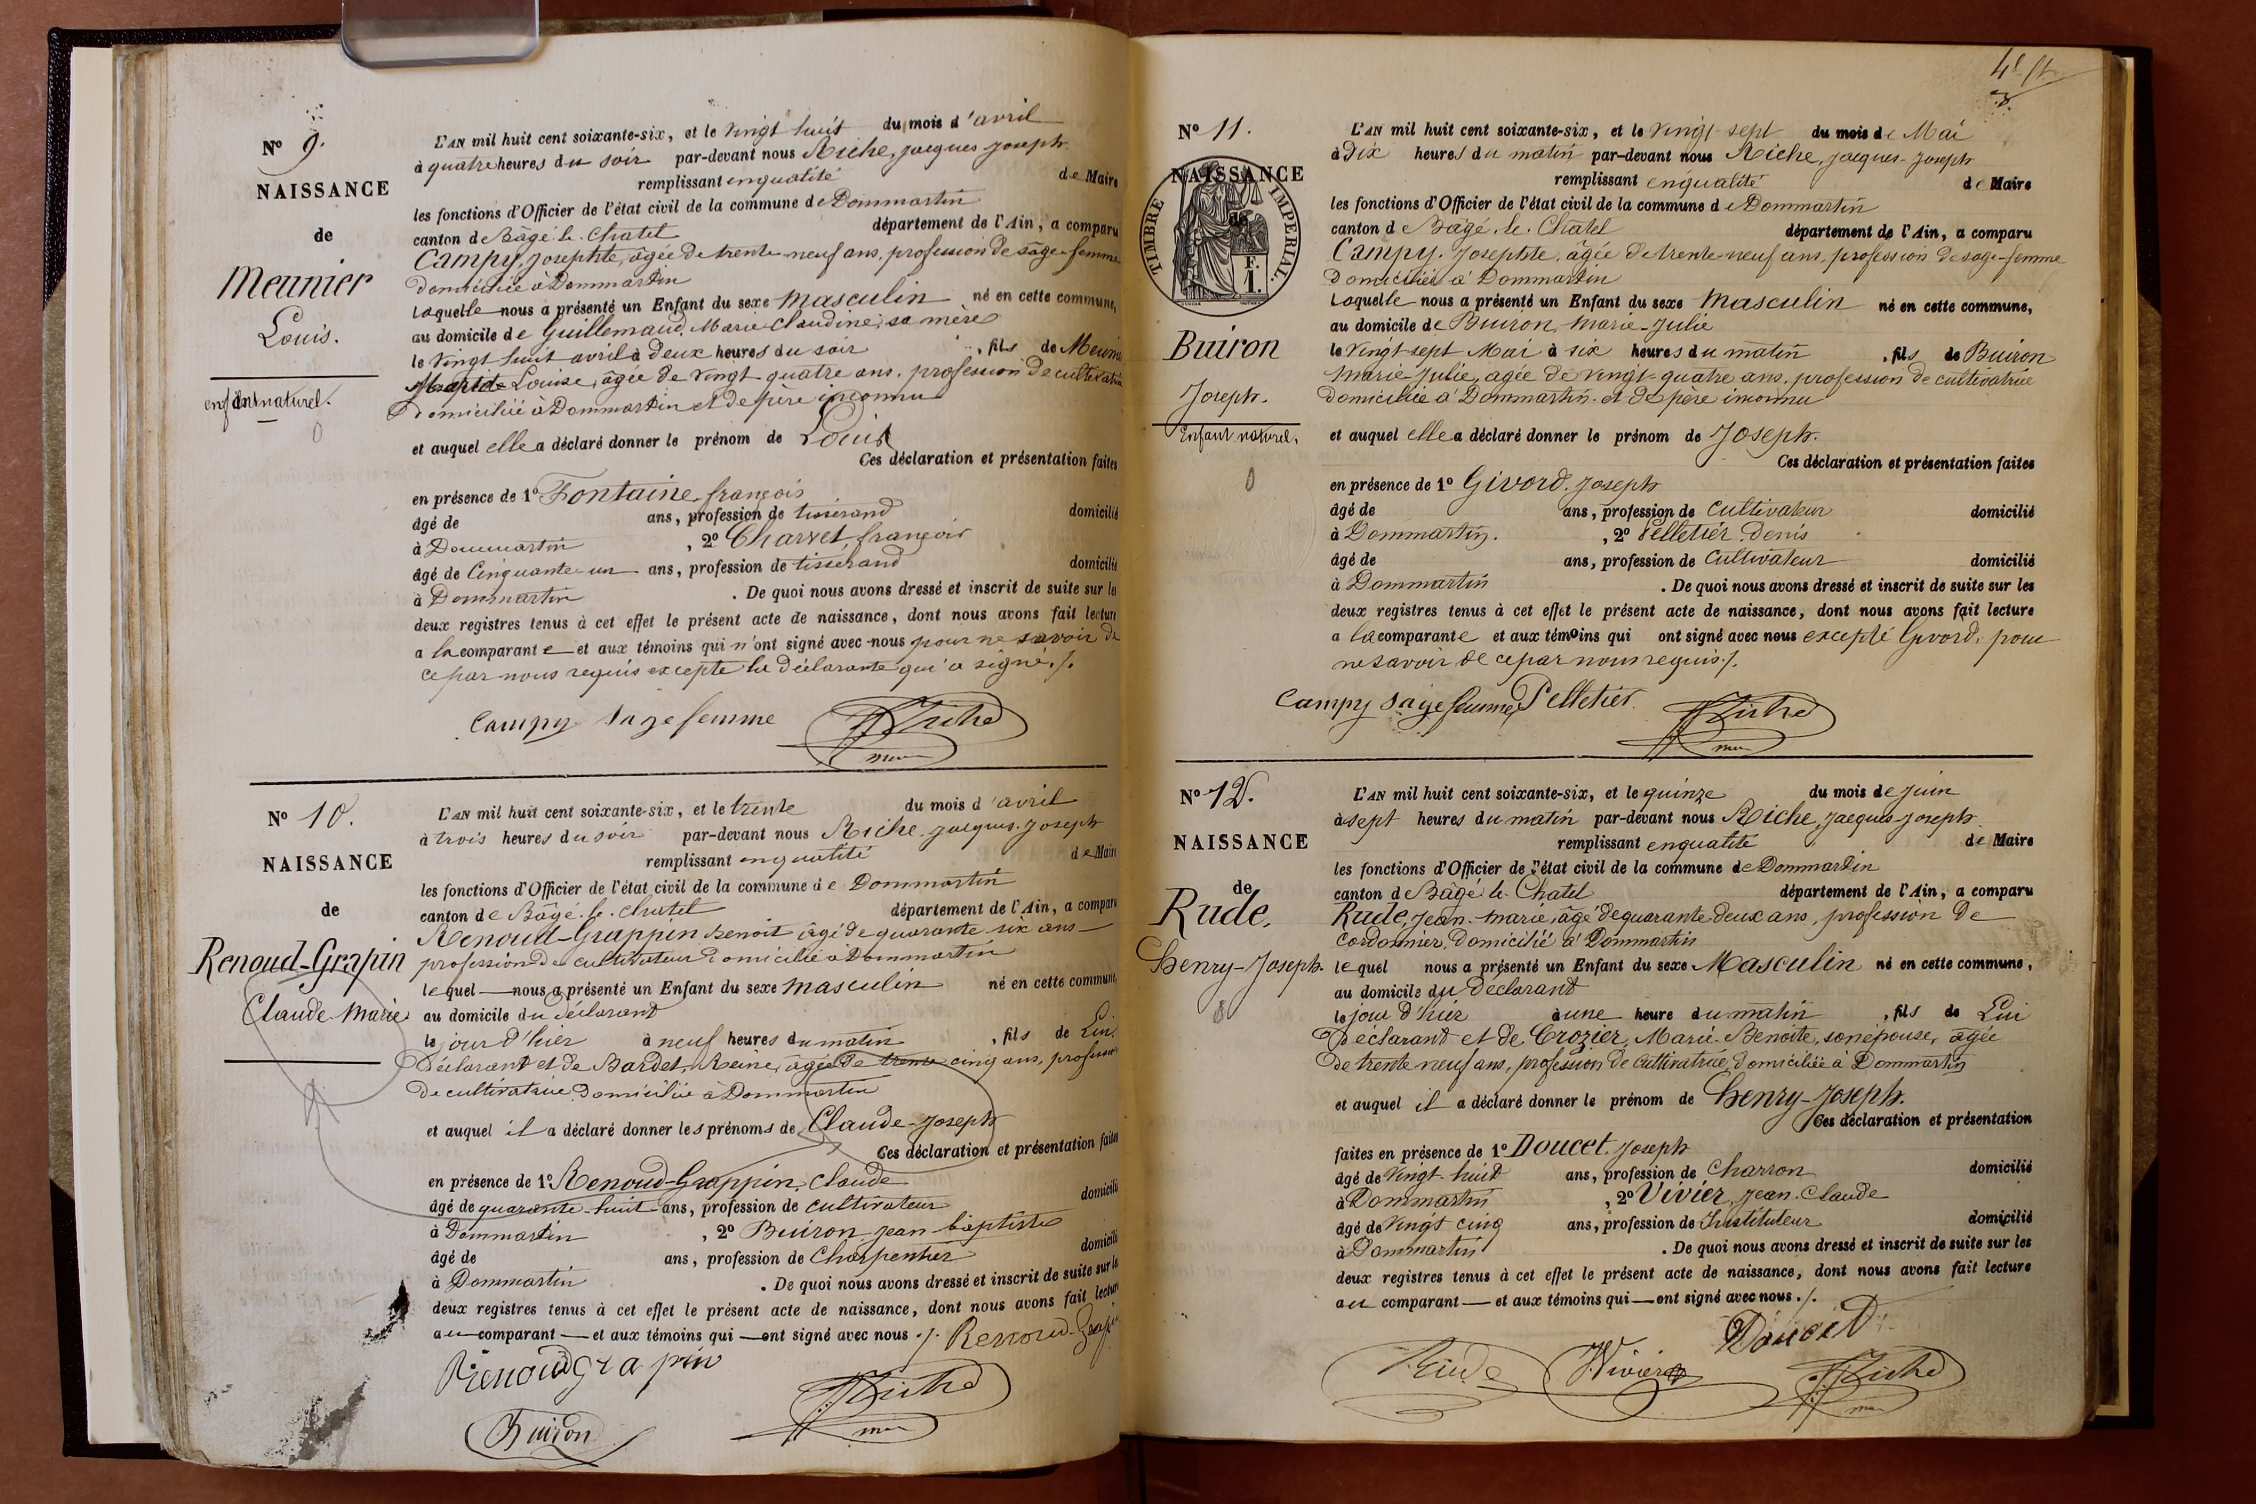 N° 9.
NAISSANCE
de
Meunier
Louis.
enfant naturel.
L'AN mil huit cent soixante-six, et le vingt huit du mois d'avril
à quatre heures du soir par-devant nous Riche, Jacques Joseph
remplissant en qualité de Maire
les fonctions d'Officier de l'état civil de la commune de Dommartin
canton de Bâgé-le-Chatel département de l'Ain, a comparu
Campy, Josephte, âgée de trente-neuf ans, profession de sage-femme
domiciliée à Dommartin
Laquelle nous a présenté un Enfant du sexe masculin né en cette commune,
au domicile de Guillemaud, Marie-Claudine, sa mère
le vingt huit avril à deux heures du soir, fils de Meunier
Louise, âgée de vingt quatre ans, profession de cultivatrice
domiciliée à Dommartin et de père inconnu
et auquel elle a déclaré donner le prénom de Louis
Ces déclaration et présentation faites
en présence de 1° Fontaine, françois
âgé de ans, profession de tisserand domicilié
à Dommartin, 2° Charvet, françois
âgé de Cinquante-un ans, profession de tisserand domicilié
à Dommartin. De quoi nous avons dressé et inscrit de suite sur les
deux registres tenus à cet effet le présent acte de naissance, dont nous avons fait lecture
a la comparante et aux témoins qui n'ont signé avec nous pour ne savoir de
ce par nous requis excepté la déclarante qui a signé./.
Campy sage femme Riche
N° 10.
NAISSANCE
de
Renoud-Grapin
Claude-Marie
L'AN mil huit cent soixante-six, et le trente du mois d'avril
à trois heures du soir par-devant nous Riche, Jacques-Joseph
remplissant en qualité de Maire
les fonctions d'Officier de l'état civil de la commune de Dommartin
canton de Bâgé-le-Chatel département de l'Ain, a comparu
Renoud-Grappin Benoit âgé de quarante-six ans
profession de cultivateur domicilié à Dommartin
lequel nous a présenté un Enfant du sexe masculin né en cette commune,
au domicile du déclarant
le jour d'hier à neuf heures du matin, fils de Lui
Déclarant et de Bardet, Reine, âgée de trente cinq ans, profession
de cultivatrice domiciliée à Dommartin
et auquel il a déclaré donner les prénoms de Claude-Joseph
Ces déclaration et présentation faites
en présence de 1° Renoud-Grappin, Claude
âgé de quarante-huit ans, profession de cultivateur domicilié
à Dommartin, 2° Buiron Jean-baptiste
âgé de ans, profession de Charpentier domicilié
à Dommartin. De quoi nous avons dressé et inscrit de suite sur les
deux registres tenus à cet effet le présent acte de naissance, dont nous avons fait lecture
au comparant et aux témoins qui ont signé avec nous ./. Renoud-Grapin
Renoudgrapin
Riche
Buiron
N° 11.
NAISSANCE
de
TIMBRE IMPERIAL.
F.
1.
Buiron
Joseph.
Enfant naturel.
L'AN mil huit cent soixante-six, et le vingt-sept du mois de Mai
à Dix heures du matin par-devant nous Riche, Jacques-Joseph
remplissant en qualité de Maire
les fonctions d'Officier de l'état civil de la commune de Dommartin
canton de Bâgé-le-Chatel département de l'Ain, a comparu
Campy, Josephte, âgée de trente-neuf ans, profession de sage-femme
domiciliée à Dommartin
Laquelle nous a présenté un Enfant du sexe masculin né en cette commune,
au domicile de Buiron, Marie-Julie
le vingt-sept Mai à six heures du matin, fils de Buiron
Marie-Julie, agée de vingt-quatre ans, profession de cultivatrice
domiciliée à Dommartin et de père inconnu
et auquel elle a déclaré donner le prénom de Joseph.
Ces déclaration et présentation faites
en présence de 1° Givord, Joseph
âgé de ans, profession de cultivateur domicilié
à Dommartin., 2° Pelletier, Denis
âgé de ans, profession de cultivateur domicilié
à Dommartin. De quoi nous avons dressé et inscrit de suite sur les
deux registres tenus à cet effet le présent acte de naissance, dont nous avons fait lecture
a la comparante et aux témoins qui ont signé avec nous excepté Givord, pour
ne savoir de ce par nous requis./.
Campy sage femme Pelletier Riche
N° 12.
NAISSANCE
de
Rude,
Henry-Joseph.
L'AN mil huit cent soixante-six, et le quinze du mois de juin
à sept heures du matin par-devant nous Riche, Jacques-Joseph
remplissant en qualité de Maire
les fonctions d'Officier de l'état civil de la commune de Dommartin
canton de Bâgé-le-Chatel département de l'Ain, a comparu
Rude, Jean-Marie, âgé de quarante-deux ans, profession de
cordonnier, domicilié à Dommartin
lequel nous a présenté un Enfant du sexe Masculin né en cette commune,
au domicile du Déclarant
le jour d'hier à une heure du matin, fils de Lui
Déclarant et de Crozier, Marie-Benoite, son épouse, âgée
de trente neuf ans, profession de cultivatrice, domiciliée à Dommartin
et auquel il a déclaré donner le prénom de Henry-Joseph.
Ces déclaration et présentation
faites en présence de 1° Doucet, Joseph
âgé de vingt-huit ans, profession de Charron domicilié
à Dommartin, 2° Vivier, Jean-Claude
âgé de vingt cinq ans, profession de Instituteur domicilié
à Dommartin. De quoi nous avons dressé et inscrit de suite sur les
deux registres tenus à cet effet le présent acte de naissance, dont nous avons fait lecture
au comparant et aux témoins qui ont signé avec nous ./.
Doucet
Rude Vivier Riche